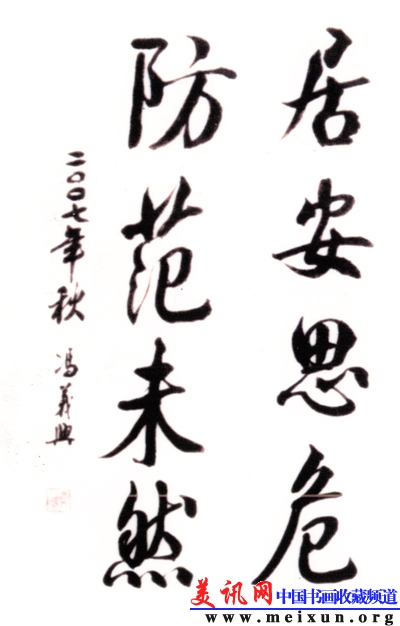 居安思危
防范未然
二〇〇七年秋 冯義兴
美讯网 中国书画收藏频道
www.meixun.org